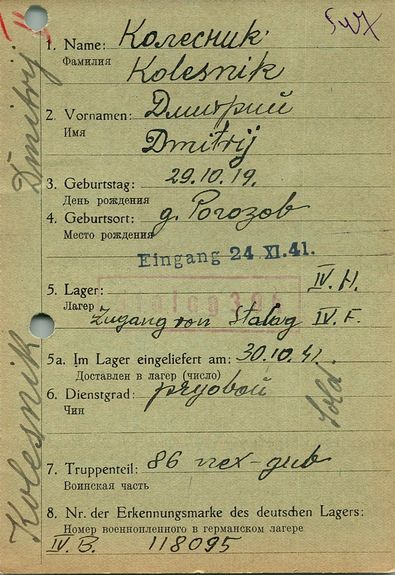 1. Name: Колесник
Фамилия
Kolesnik
2. Vornamen: Дмитрий
Имя
Dmitrij
3. Geburtstag: 29.10.19.
День рождения
4. Geburtsort: д. Рогозов
Место рождения
Eingang 24 XI. 41.
5. Lager: IV. H.
Лагерь
Zugang von Stalag IV. F.
5a. Im Lager eingeliefert am: 30.10.41.
Доставлен в лагерь (число)
6. Dienstgrad: рядовой
Чин
Sold
7. Truppenteil: 86 пех-див
Воинская часть
8. Nr. der Erkennungsmarke des deutschen Lagers:
Номер военнопленного в германском лагере
IV. B. 118095
Kolesnik Dmitrij